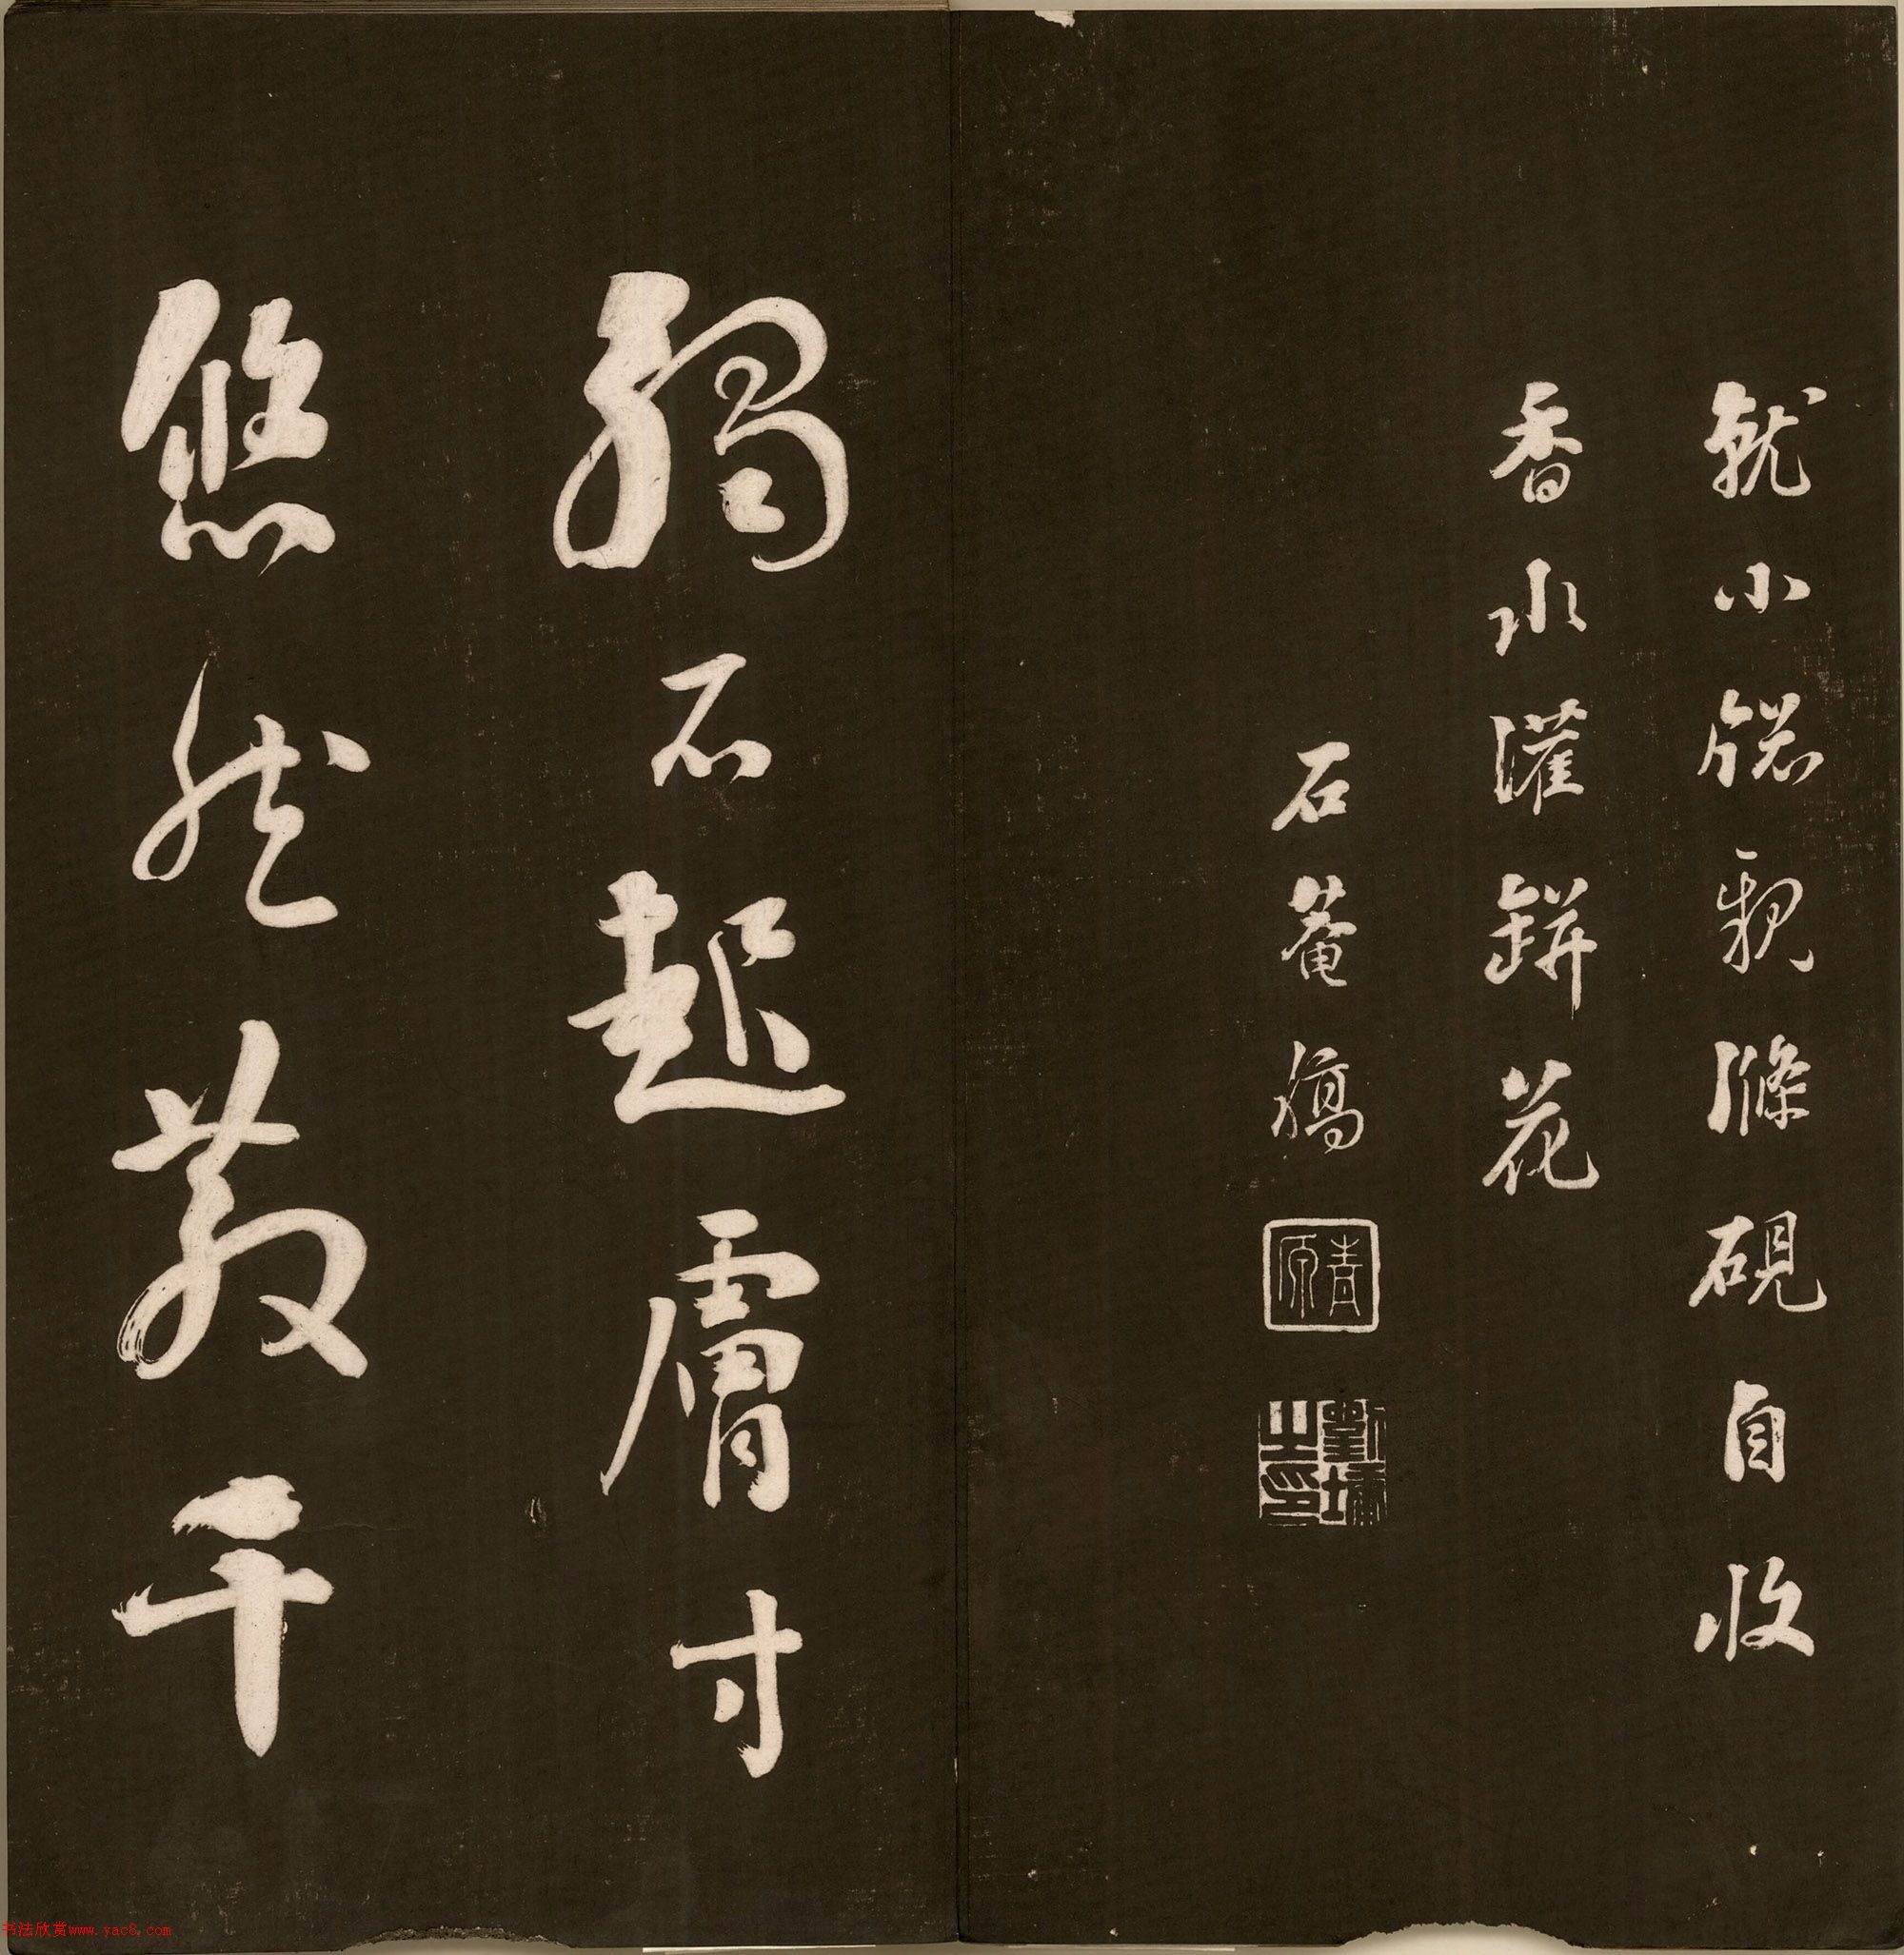 就小牕親滌硯自收
香水灌缾花
石菴墉
青原
劉墉之印
觸石起膚寸
悠然散千
书法欣赏www.yac8.com